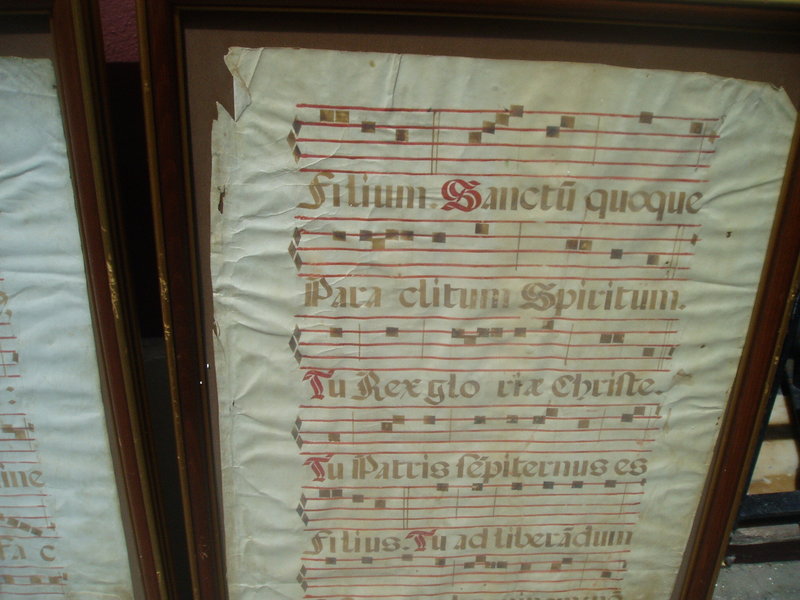 Filium. Sanctū quoque
Para clitum Spiritum.
Tu Rex glo riæ Chriſte.
Tu Patris ſēpiternus es
Filius. Tu ad liberādum
ine
fa c